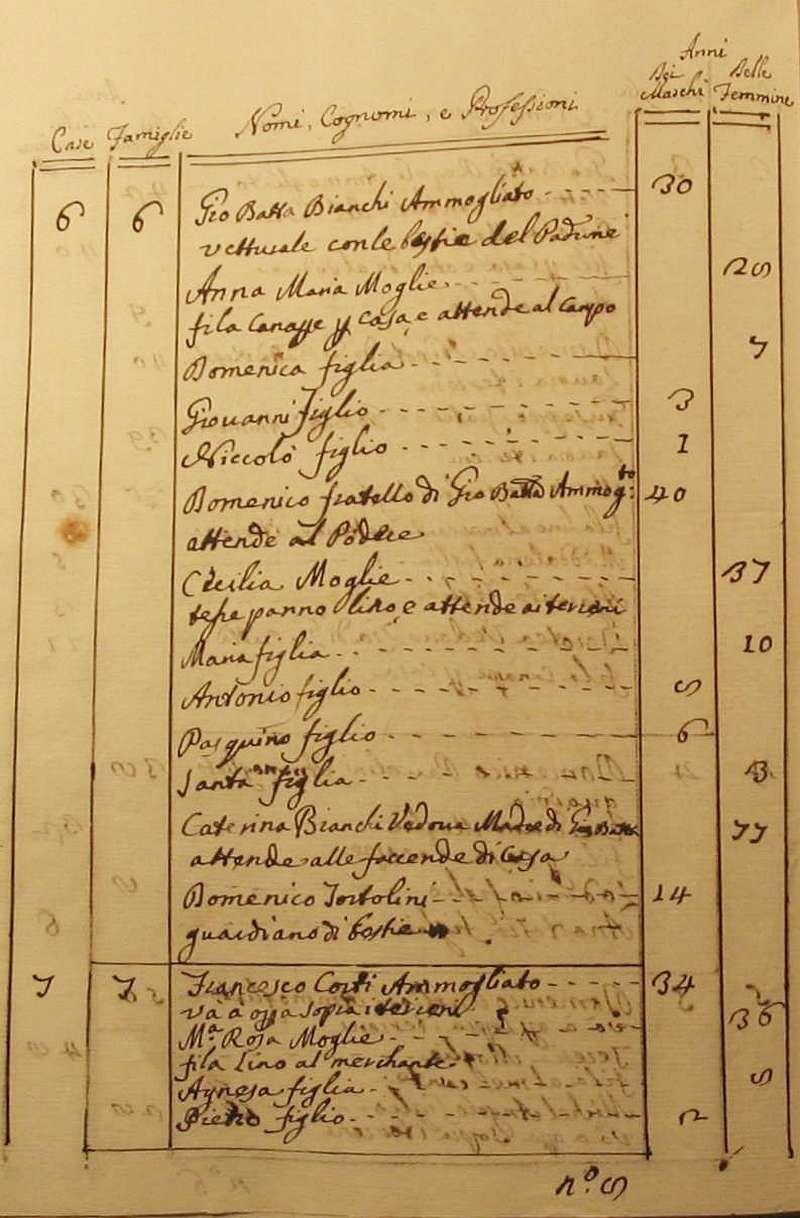 Anni
Case Famiglie Nomi, Cognomi, e Professioni Dei Maschi Delle Femmine
6 6 Gio Batta Bianchi Ammogliato 30
vetturale con le bestie del Padrone
Anna Maria Moglie 25
fila Canape p casa, e attende al campo
Domenica figlia 7
Giovanni figlio 3
Niccolò figlio 1
Domenico fratello di Gio Batta Ammog:to 40
attende al Podere
Cicilia Moglie 37
tesse panno lino, e attende ai tereni
Maria figlia 10
Antonio figlio 5
Pasquino figlio 6
Santa figlia 3
Caterina Bianchi Vedova Madre di Gio Batta 77
attende alle faccende di Casa
Domenico Tortolini 14
guardiano di bestie
7 7 Francesco Corti Ammogliato 34
và à opa sopra i tereni
M.a Rosa Moglie 36
fila Lino al merchante
Agnesa figlia 5
Pietro figlio 2
n.o 5